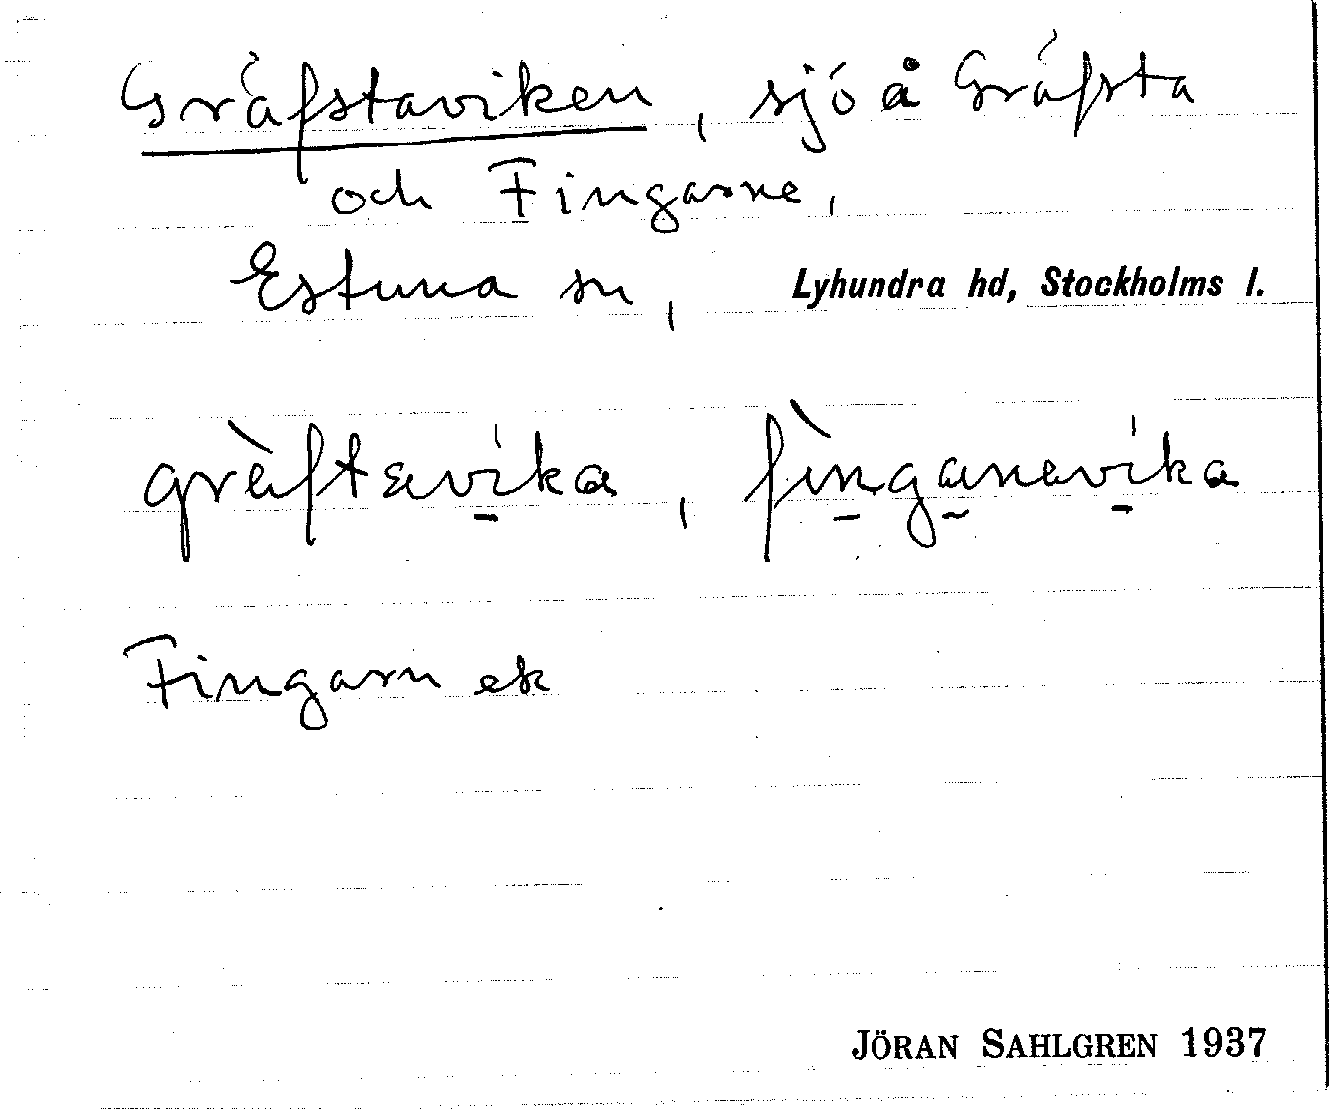 Gräfstaviken, sjö å Gräfsta
och Fingarne,
Estuna sn, Lyhundra hd, Stockholms l.
gräftavika, finganevika
Fingarn ek
JÖRAN SAHLGREN 1937